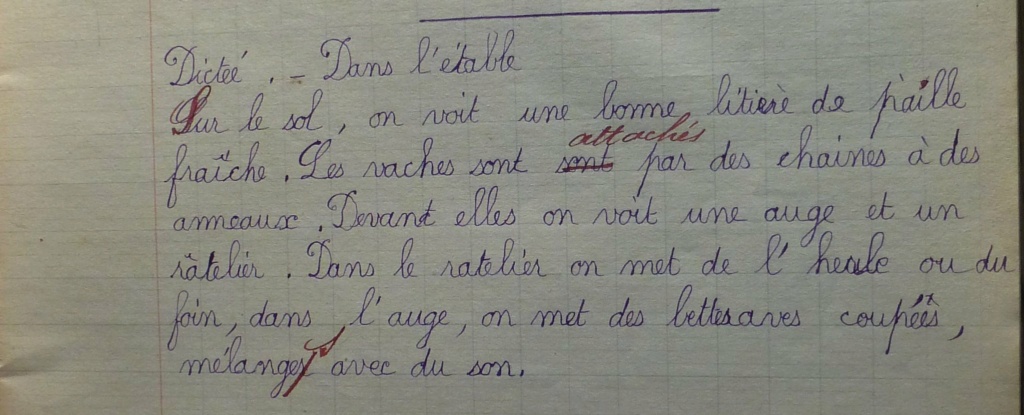 Dicteé . - Dans l'étable
Sur le sol, on voit une bonne litière de paille
attachés
fraîche. Les vaches sont sont par des chaines à des
anneaux. Devant elles on voit une auge et un
râtelier. Dans le ratelier on met de l'herbe ou du
foin, dans l'auge, on met des betteraves coupées,
mélangé avec du son.